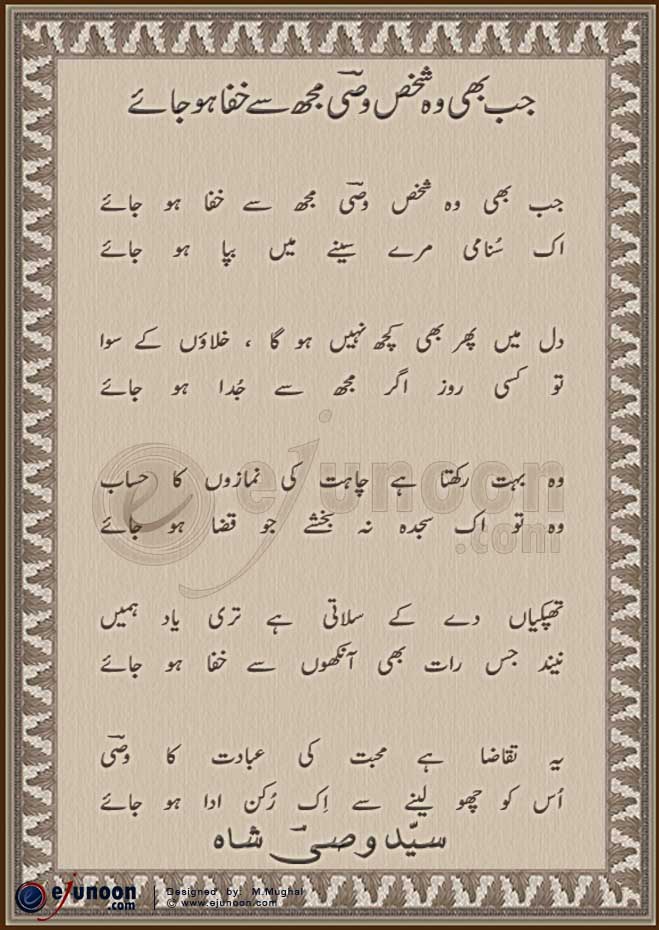 جب بھی وہ شخص وصیؔ مجھ سے خفا ہو جائے
جب بھی وہ شخص وصیؔ مجھ سے خفا ہو جائے
اک سُنامی مرے سینے میں بپا ہو جائے
دل میں پھر بھی کچھ نہیں ہو گا ، خلاؤں کے سوا
تو کسی روز اگر مجھ سے جُدا ہو جائے
وہ بہت رکھتا ہے چاہت کی نمازوں کا حساب
وہ تو اک سجدہ نہ بخشے جو قضا ہو جائے
تھپکیاں دے کے سلاتی ہے تری یاد ہمیں
نیند جس رات بھی آنکھوں سے خفا ہو جائے
یہ تقاضا ہے محبت کی عبادت کا وصیؔ
اُس کو چھو لینے سے اِک رُکن ادا ہو جائے
سیّد وصیؔ شاہ
ejunoon.com
ejunoon.com
Designed by: M.Mughal
© www.ejunoon.com